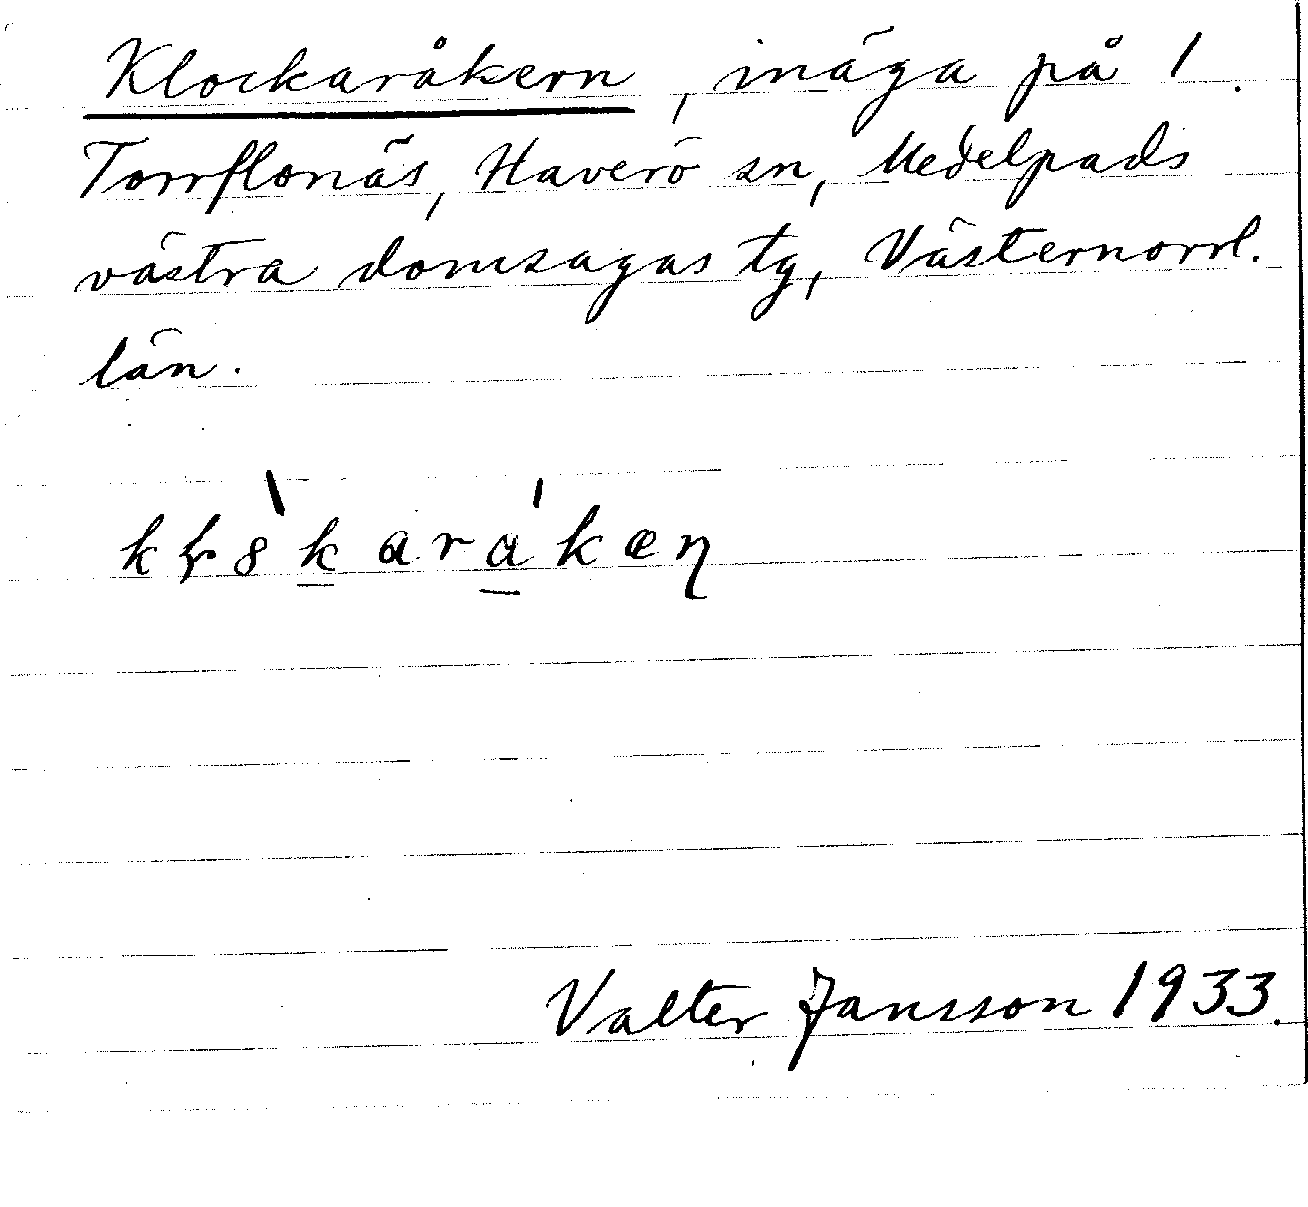 Klockaråkern, inäga på 1.
Torrflonäs, Haverö sn, Medelpads
västra domsagas tg, Västernorrl.
län.
Valter Jansson 1933.